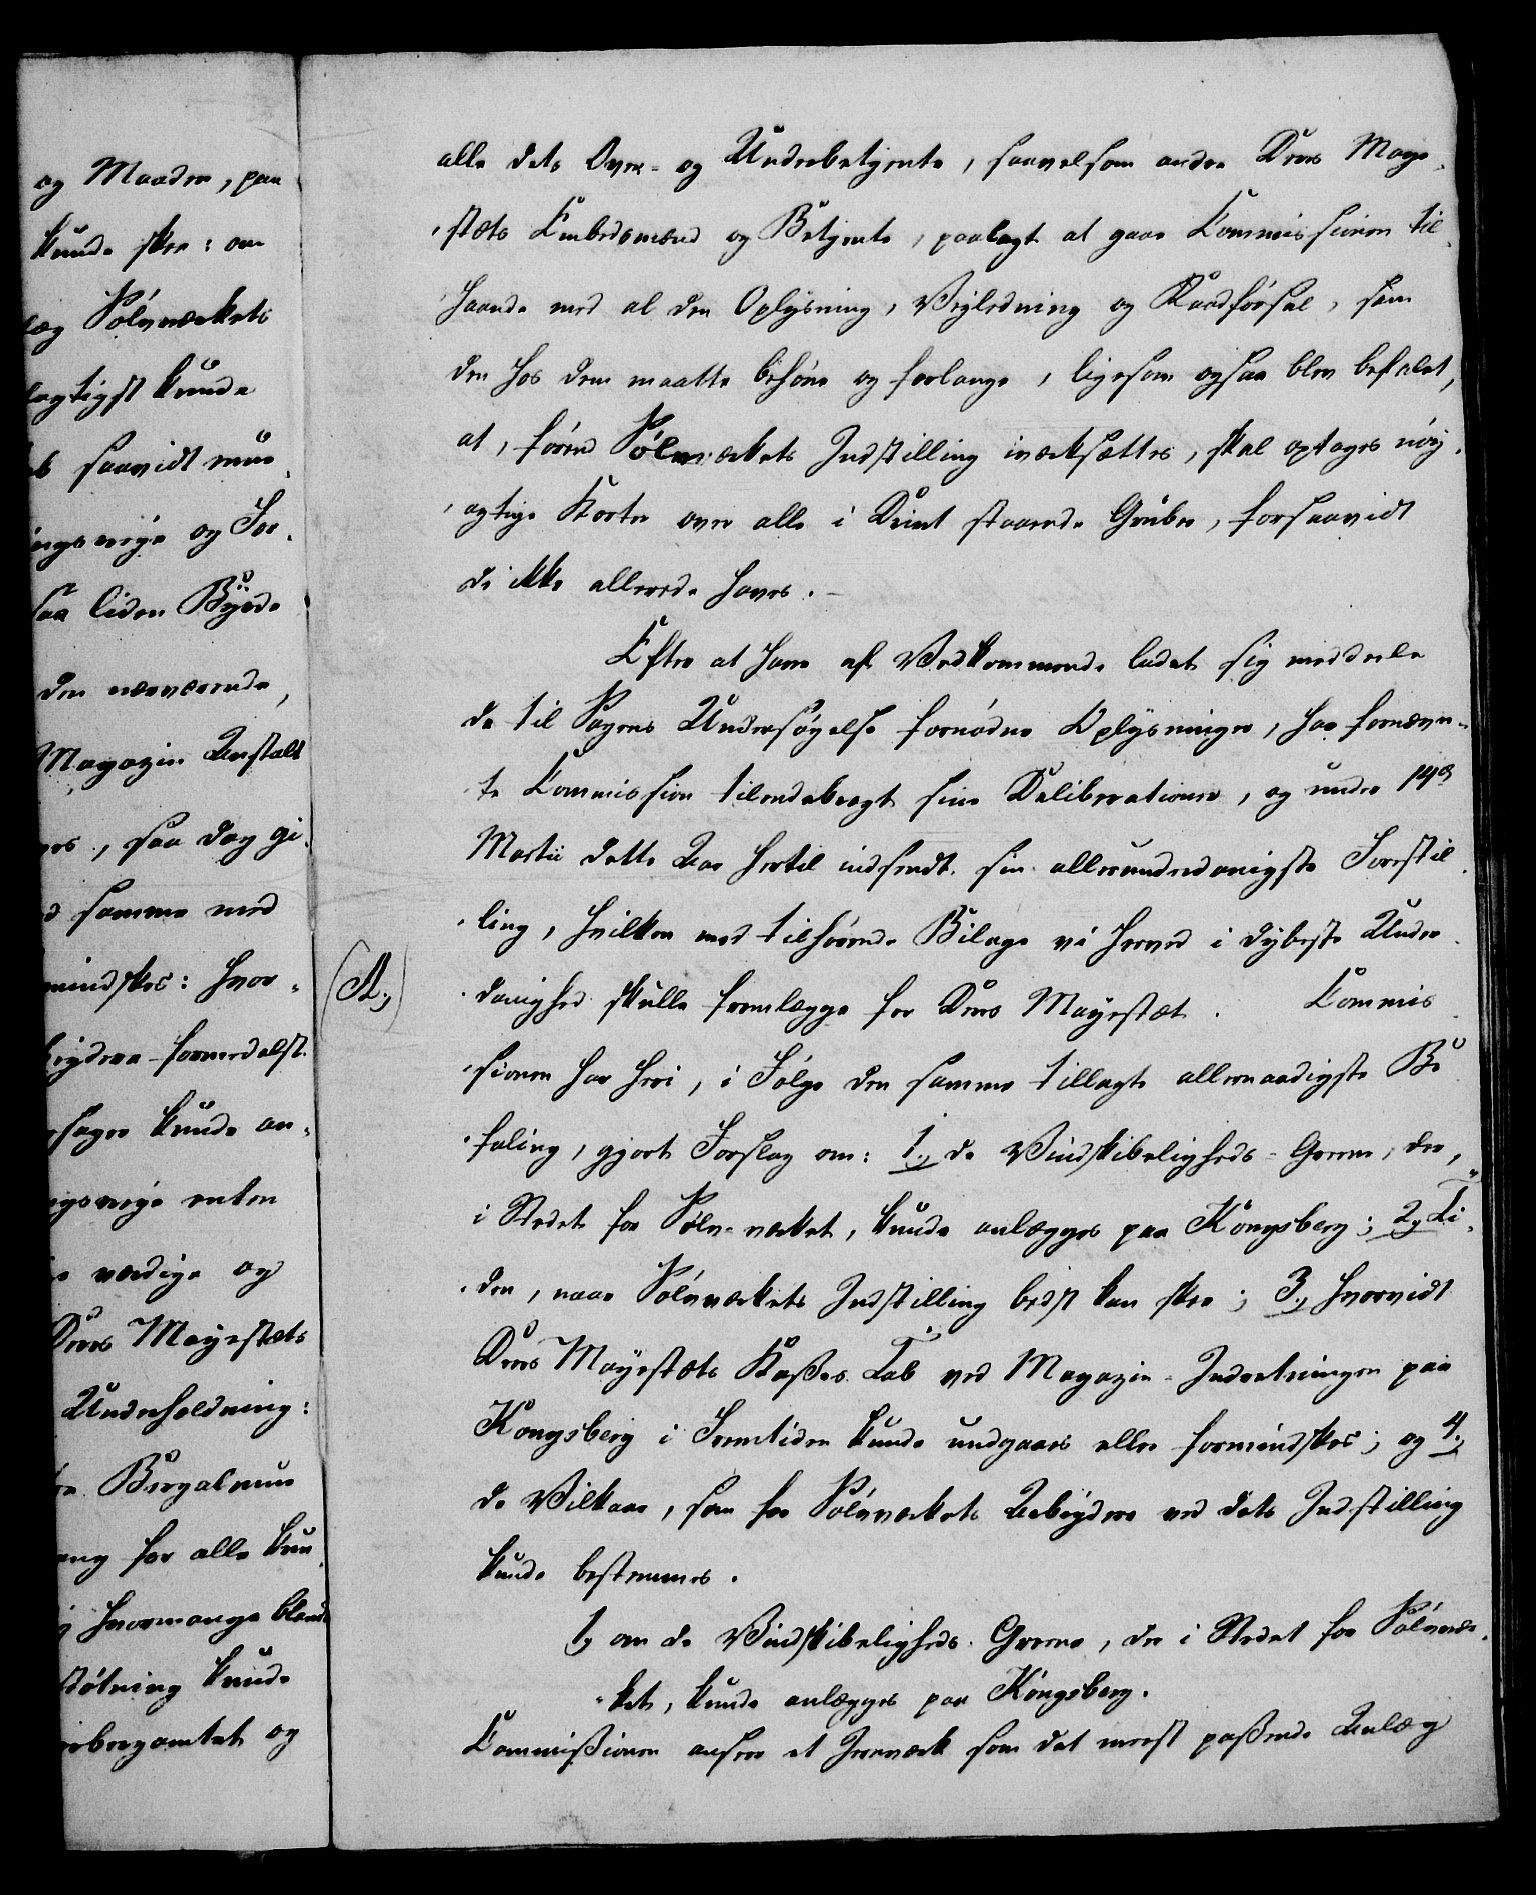 og Maader, paa
kunde skee: om
læg Sölvværkets
lagtigst kunde
saavidt mue
ingsveye og For,
saa liden Byrde
den nærværende,
Magazin Anstalt
res, saa dog gi,
d samme med
mindskes: hvor,
beydere formedelst
sager kunde an,
ngsveye enten
værdige og
Deres Mayestæts
Underholdning:
Bergalmue
ang for alle kun,
hvormange blandt
stötning kunde
erbergamtet og
alle dets Over- og Underbetjente, saavelsom andre Deres Maye,
,stæts Embedsmænd og Betjente, paalagt at gaae Commissionen til,
haande med al den Oplysning, Veyledning og Raadförsel, som
den hos dem maatte behöve og forlange, ligesom ogsaa blev befalet,
at, förend Sölvværkets Indstilling iværksættes, skal optages nöy,
,agtige Karter over alle i Drivt staaende Gruber, forsaavidt
de ikke allerede haves. -
Efter at have af Vedkommende ladet sig meddeele
de til Sagens Undersögelse fornödne Oplysninger, har fornævn-
te Commission tilendebragt sine Deliberationer, og under 14de
Martii dette Aar hertil indsendt sin allerunderdanigste Forestil,
,ling, hvilken med tilhörende Bilage vi herved i dybeste Under,
(A.)
,danighed skulle fremlægge for Deres Mayestæt. Commis,
,sionen har heri, i Fölge den samme tillagte allernaadigste Be,
,faling, gjort Forslag om: 1., de Vindskibeligheds-Grene, der,
i Stedet for Sölv-værket, kunde anlægges paa Kongsberg; 2., Ti,
,den, naar Sölvværkets Indstilling bedst kan skee; 3., hvorvidt
Deres Mayestæts Kaßes Tab ved Magazin-Indretningen paa
Kongsberg i Fremtiden kunde undgaaes eller formindskes; og 4.,
de Vilkaar, som for Sölvværkets Arbeydere ved dets Indstilling
kunde bestemmes.
1., om de Vindskibeligheds-Grene, der i Stedet for Sölvvær,
,ket, kunde anlægges paa Kongsberg.
Commißionen anseer et Jernværk som det meest paßende Anlæg